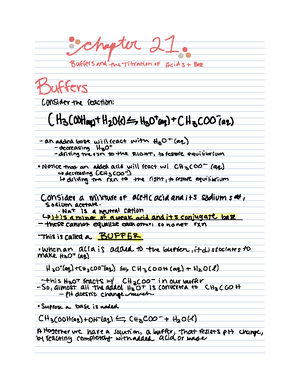 chapter 21
Buffers and the Titration of Acids + Bas
Buffers
Consider the reaction:
CH3COOH(aq)+H2O(l)⇋H3O+(aq)+CH3COO-(aq)
- an added base will react with H3O+ (aq)
- decreasing H3O+
- driving the rxn to the RIGHT, to restore equilibrium
• Notice that an added acid will react w/ CH3COO- (aq)
↳ decreasing CH3COO-
↳ driving the rxn to the right, to restore equilibrium
Consider a mixture of acetic acid and its sodium salt,
sodium acetate.
- Na+ is a neutral cation
↳ it is a mixture of a weak acid and its conjugate base
- these cannot equalize each other, so no net rxn
This is called a BUFFER
• When an acid is added to the buffer, it dissociates to
make H3O+(aq)
H3O+(aq)+CH3COO-(aq) ⇋ CH3COOH(aq) + H2O(l)
- this H3O+ reacts w/ CH3COO- in our buffer
- So, almost all the added H3O+ is converted to CH3COOH
- pH doesn't change much
• Suppose a base is added
CH3COOH(aq)+OH-(aq) ⇋ CH3COO- + H2O(l)
Altogether we have a solution, a buffer, that resists pH change,
by reacting completely with added acid or base